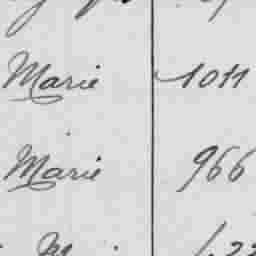 Marie 1011
Marie 966